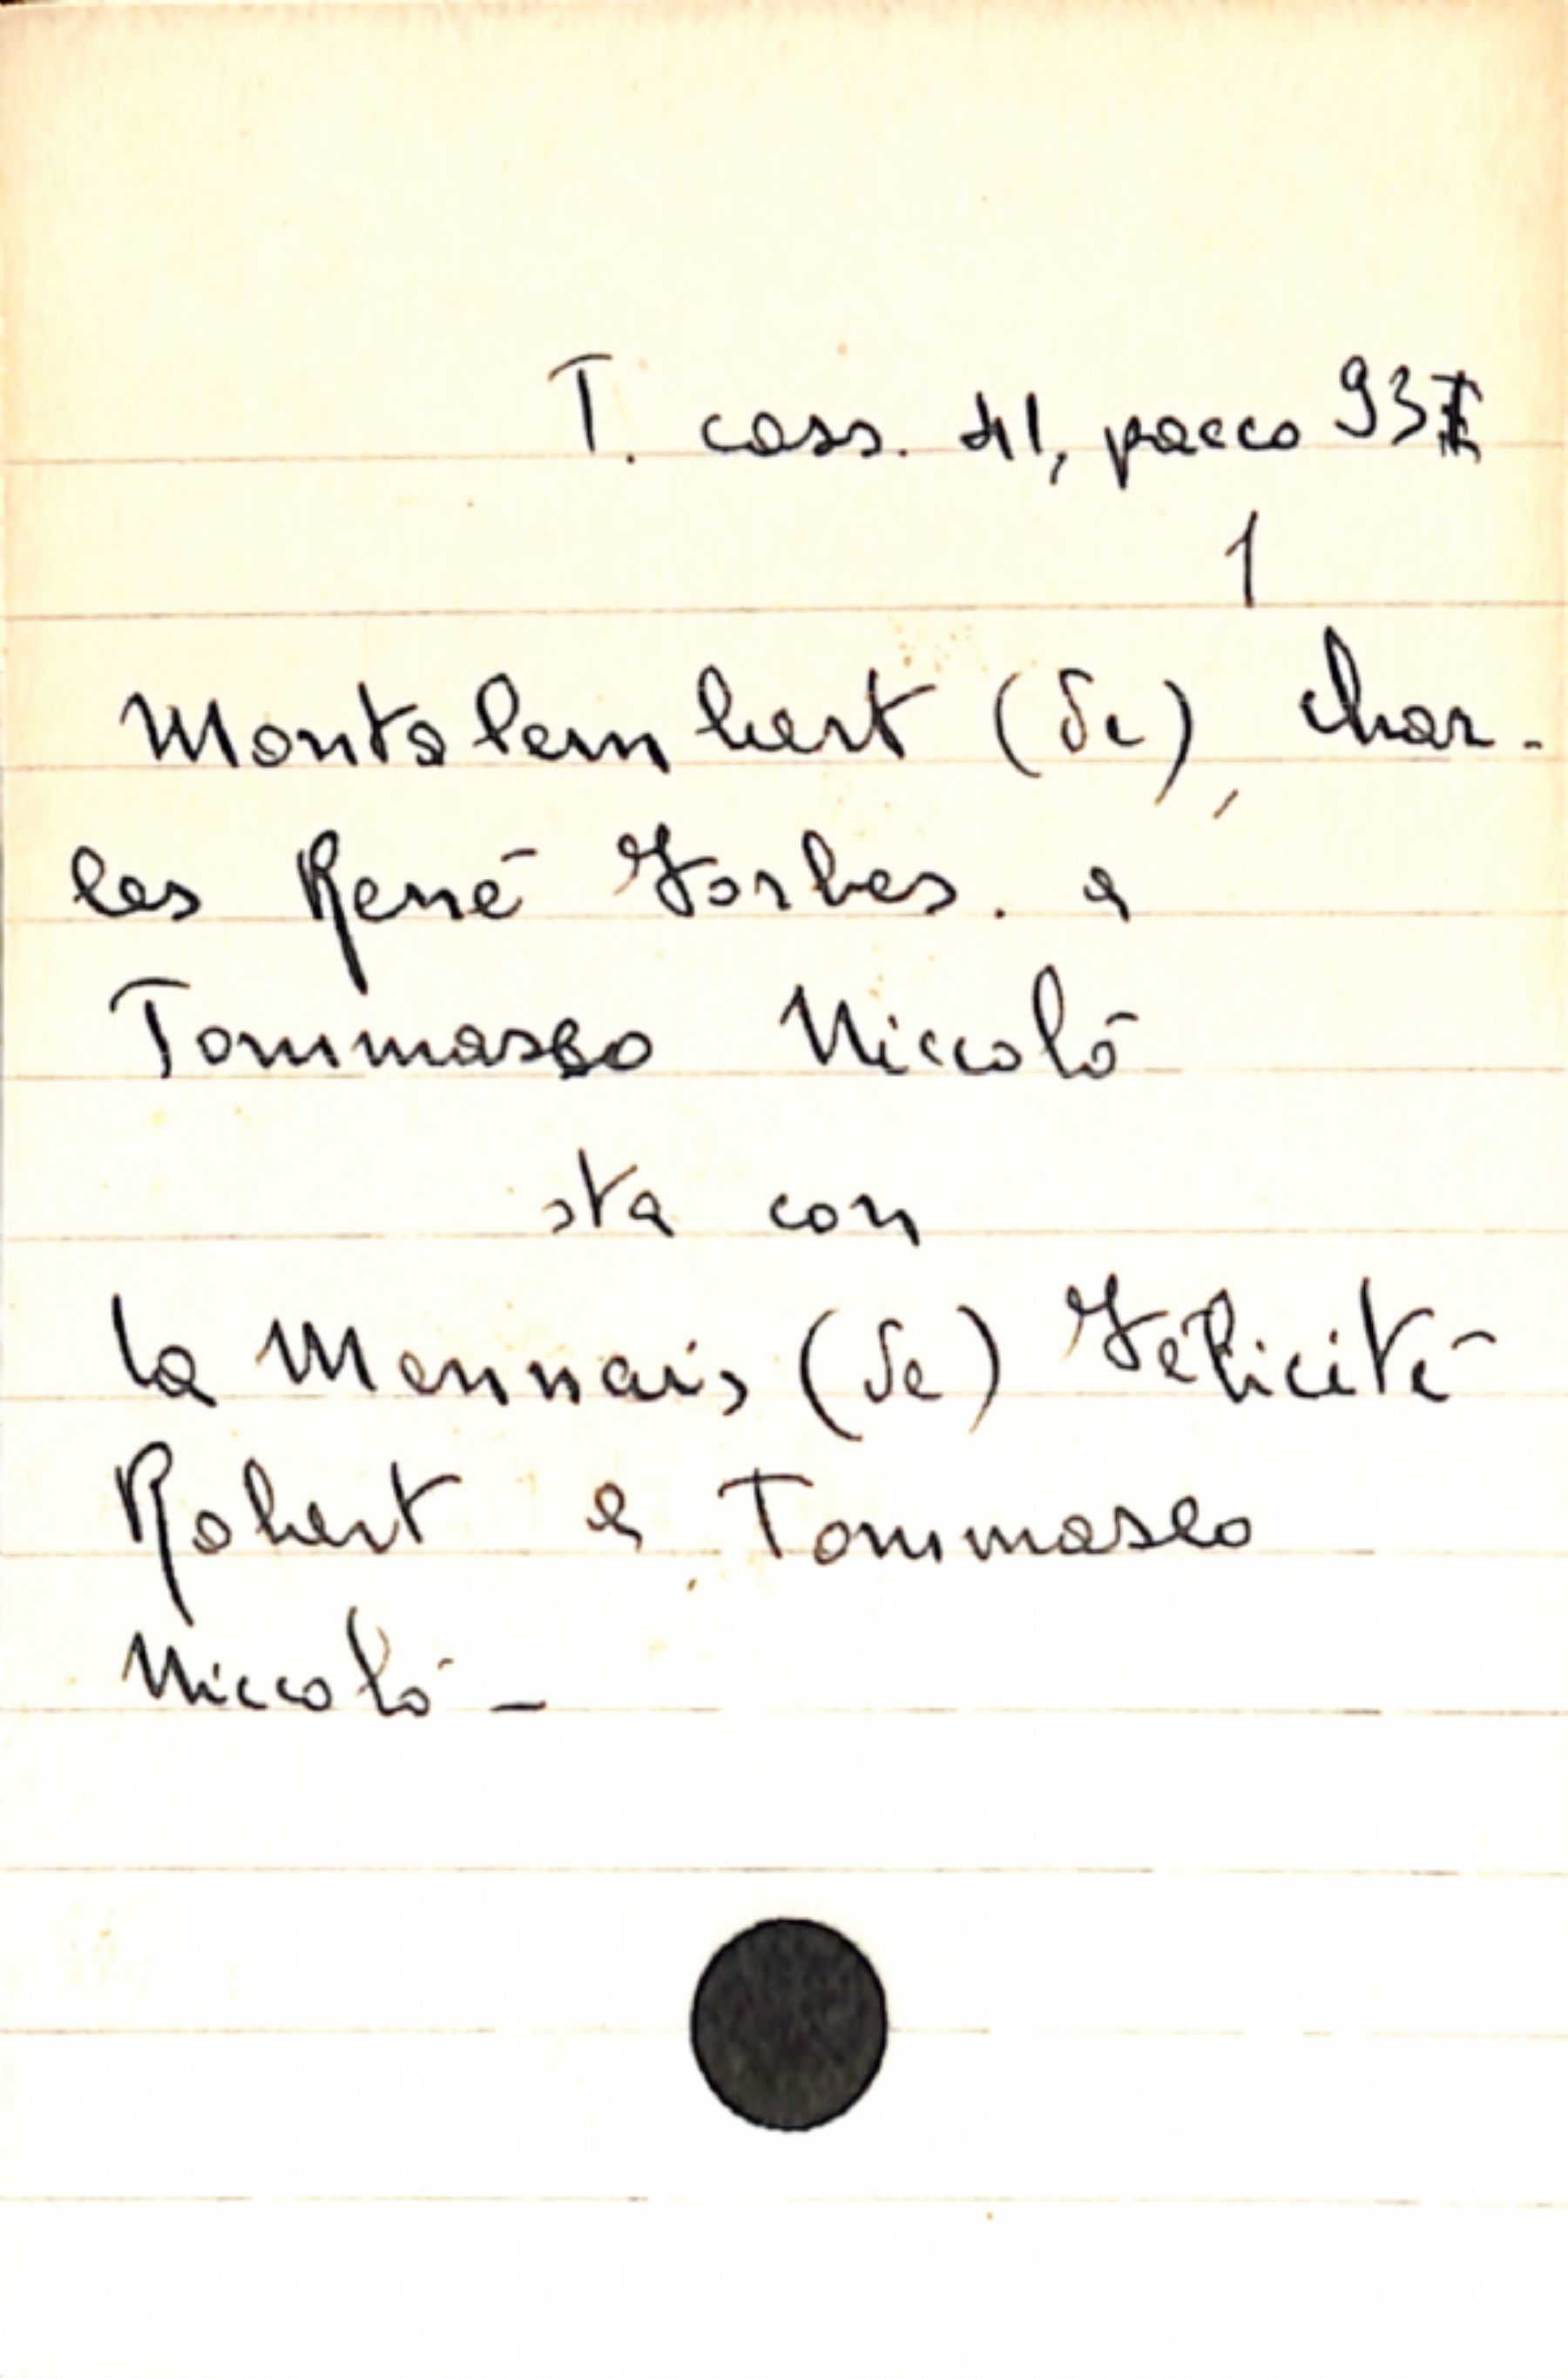 T. cass. 41, pacco 93
1
Montalembert (de), Char-
les René Forbes. e
Tommaseo Niccolò
sta con
La Mennais (de) Félicité
Robert e Tommaseo
Niccolò -